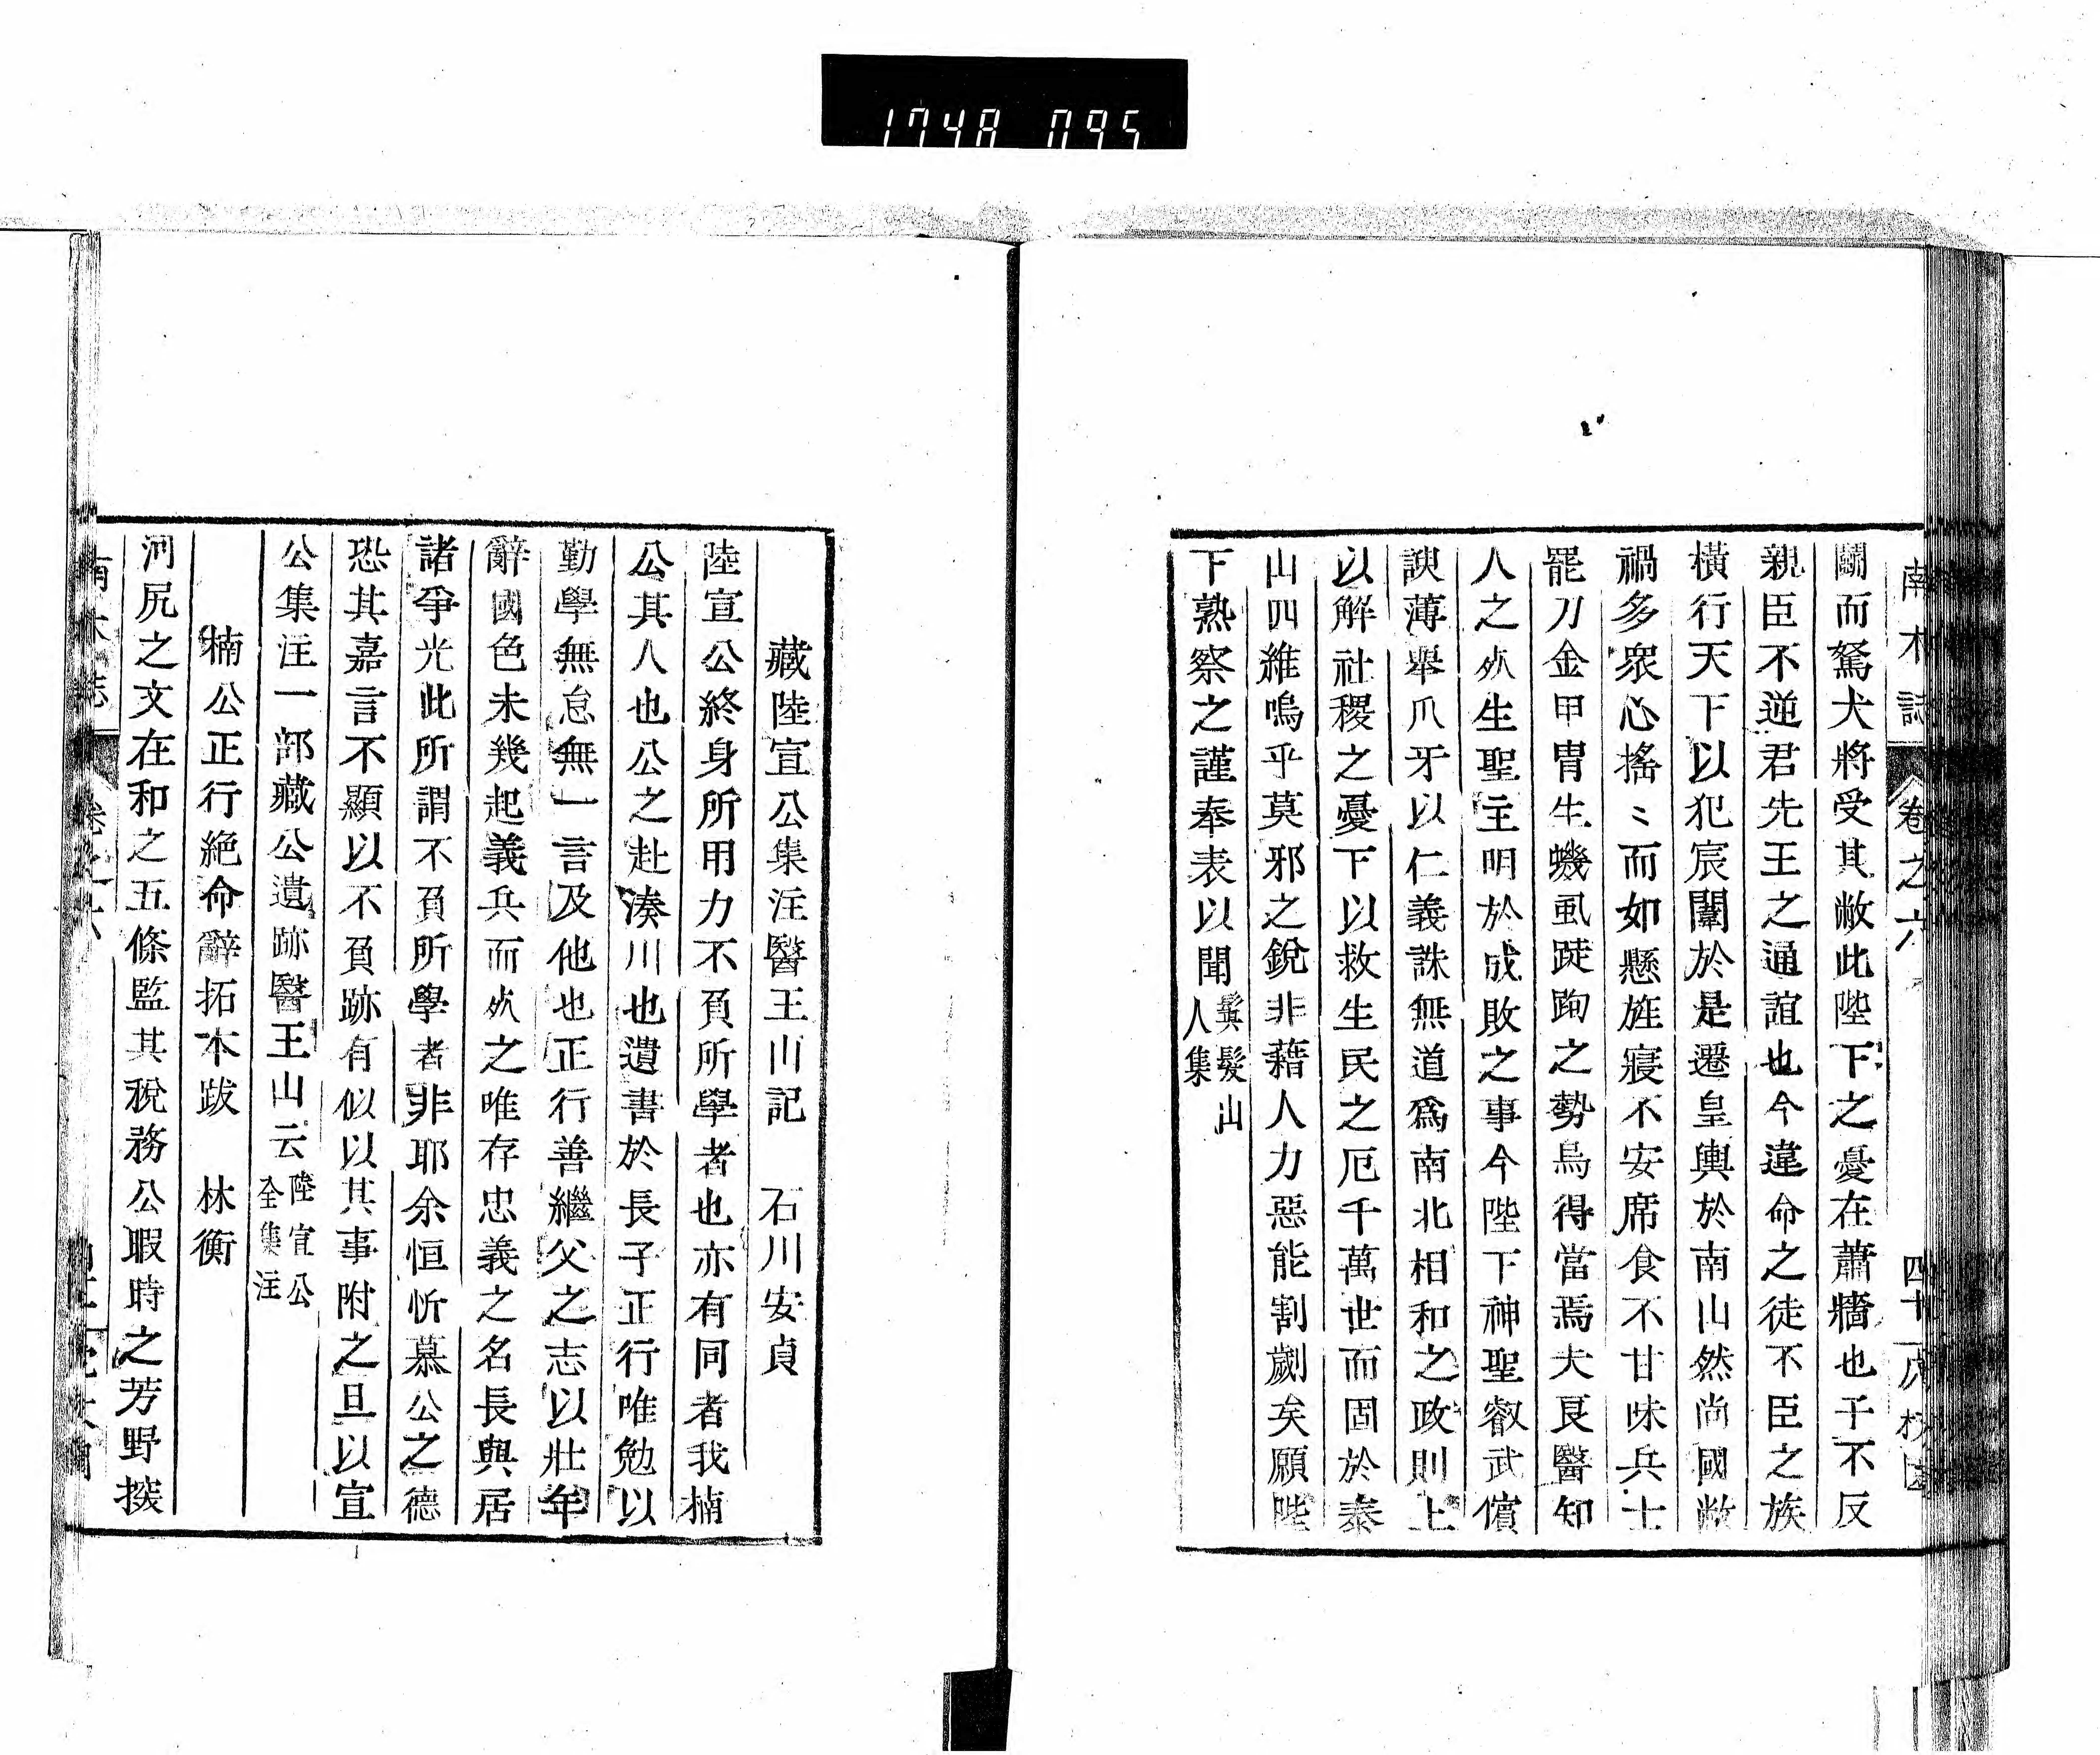 1748 095
南木誌 卷之六 四十
鬭而駑犬將受其敝此陛下之憂在蕭牆也子不反
親臣不逆君先王之通誼也今違命之徒不臣之族
横行天下以犯宸闈於是遷皇輿於南山然尚國敝
禍多衆心搖〻而如懸旌寢不安席食不甘味兵士
罷刀金甲冑生蟣虱踕跔之勢烏得當焉夫良醫知
人之㱥生聖主明於成敗之事今陛下神聖叡武儐
諛薄舉爪牙以仁義誅無道爲南北相和之政則上
以解社稷之憂下以救生民之厄千萬世而固於泰
山四維嗚乎莫邪之銳非藉人力惡能割劌矣願陛
下熟察之謹奉表以聞 龔髮山人集
藏陸宣公集注醫王山記 石川安貞
陸宣公終身所用力不負所學者也亦有同者我楠
公其人也公之赴湊川也遺書於長子正行唯勉以
勤學無怠無一言及他也正行善繼父之志以壯年
辭國色未幾起義兵而㱥之唯存忠義之名長與居
諸爭光此所謂不負所學者非耶余恒忻慕公之德
恐其嘉言不顯以不負跡有似以其事附之且以宣
公集注一部藏公遺跡醫王山云 陸宣公全集注
楠公正行絕命辭拓本跋 林衡
河尻之文在和之五條監其稅務公暇時之芳野搨
南木誌 卷之六